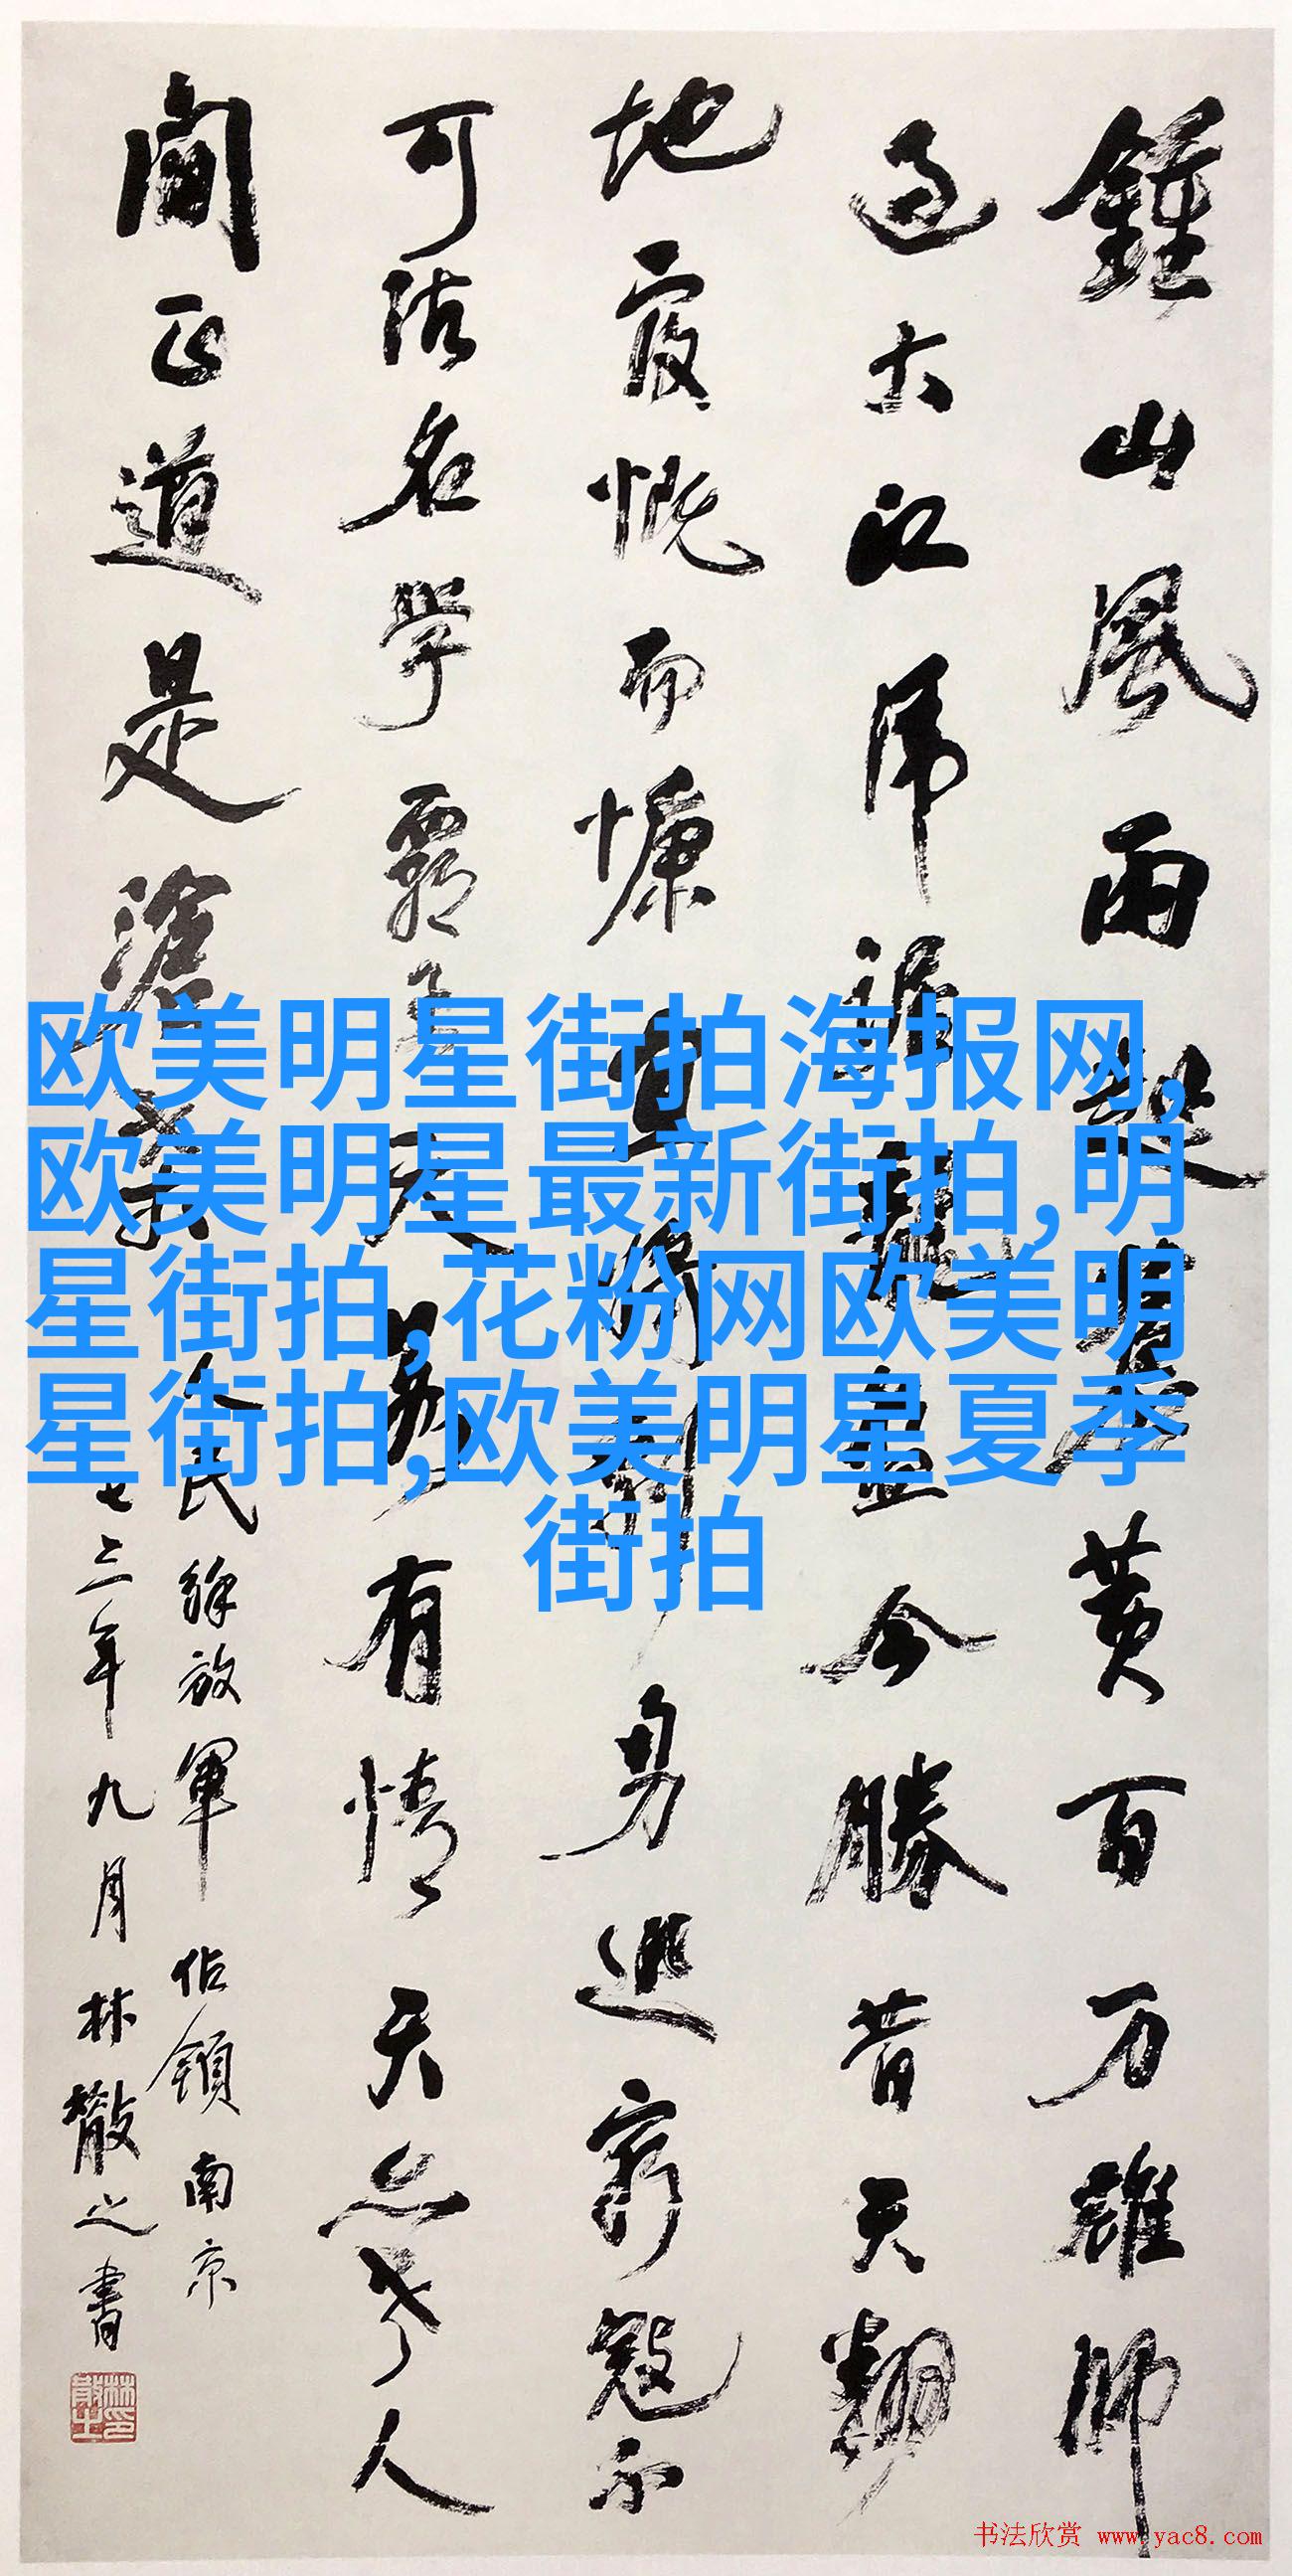 鍾山風雨起蒼黄百万雄師
过大江虎踞龍盤今勝昔天翻
地覆慨而慷宜將剩勇追窮寇不
可沽名學霸王天若有情天亦老人
間正道是滄桑
人民解放軍佔領南京
七三年九月林散之書
林散之印
欧美明星街拍海报网,
欧美明星最新街拍,明
星街拍,花粉网欧美明
星街拍,欧美明星夏季
街拍
书法欣赏 www.yac8.com